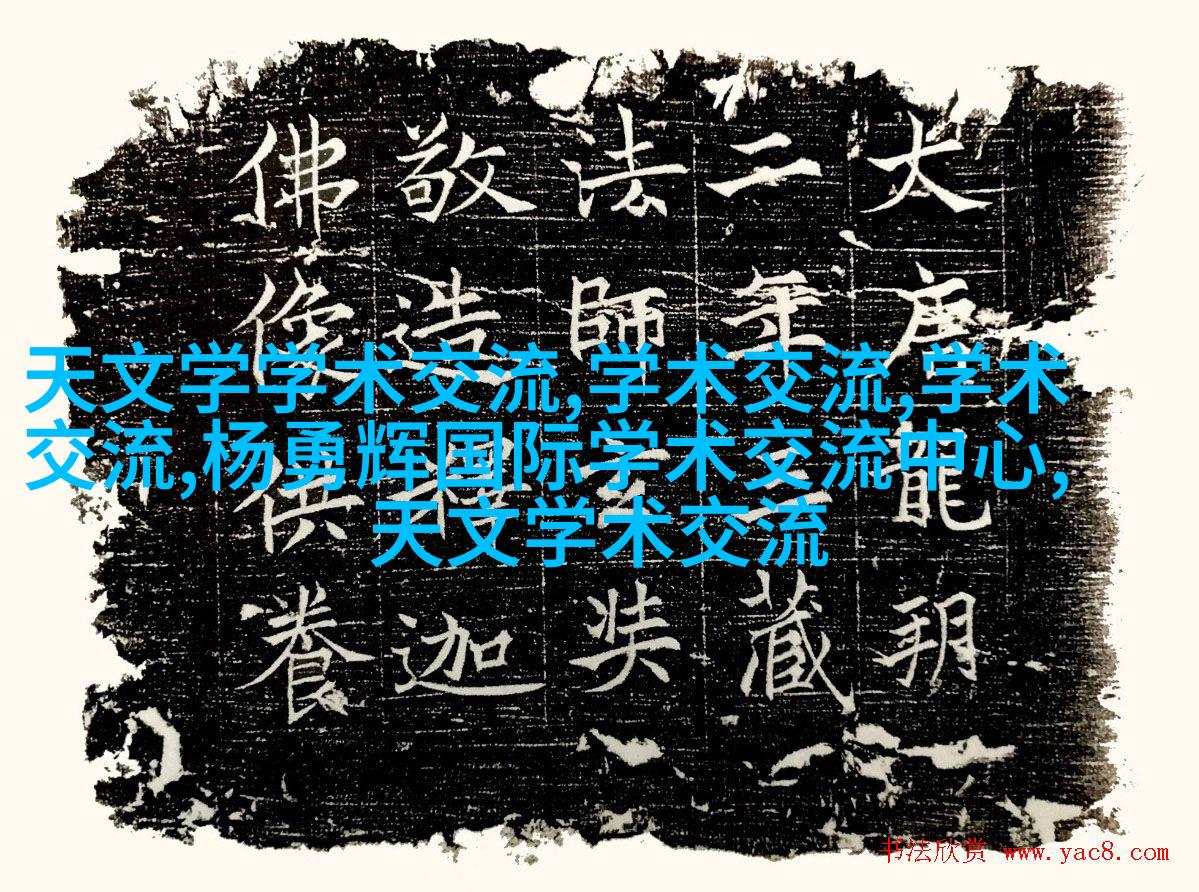 大唐龍朔
二年三藏
法師玄奘
敬造釋迦
佛像供養
天文学学术交流,学术交流,学术
交流,杨勇辉国际学术交流中心,
天文学术交流
书法欣赏 www.yac8.com